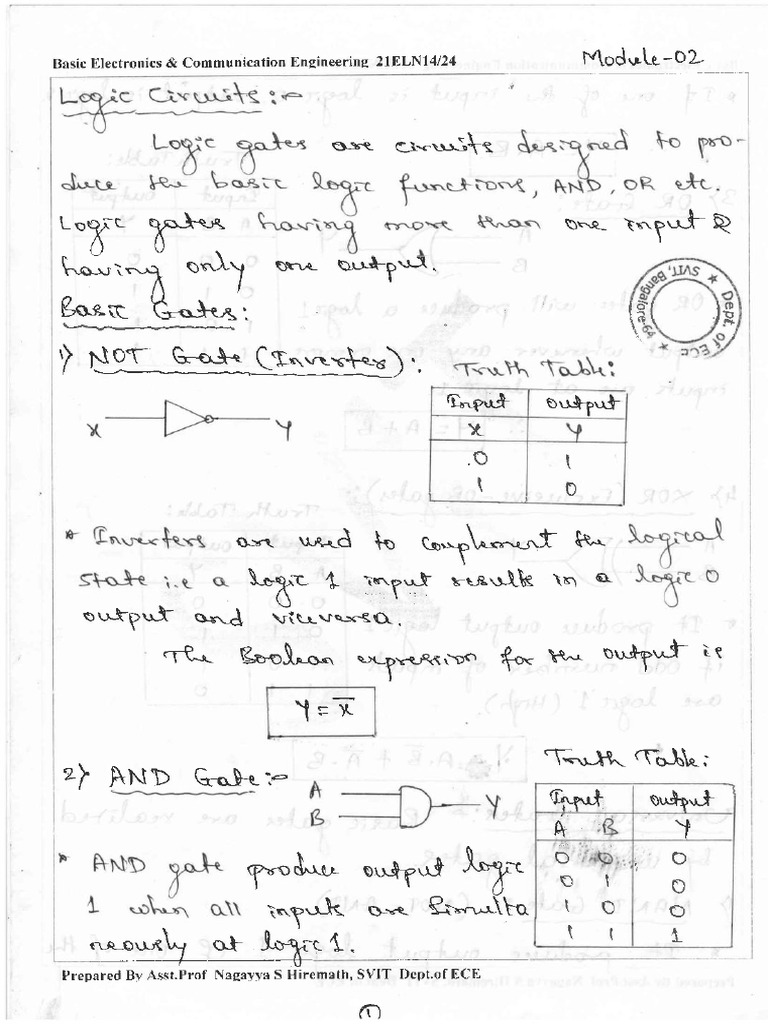 Basic Electronics & Communication Engineering 21ELN14/24 Module-02
Logic Circuits:-
Logic gates are circuits designed to pro-
duce the basic logic functions, AND, OR etc.
Logic gates having more than one input &
having only one output.
Dept. of ECE * SVIT, Bangalore-64 *
Basic Gates:
1) NOT Gate (Inverter): Truth Table:
Input output
X Y
0 1
1 0
X Y
* Inverters are used to complement the logical
state i.e a logic 1 input results in a logic 0
output and viceversa.
The Boolean expression for the output is
Y = X̅
2) AND Gate:- A B Y Truth Table:
Input output
A B Y
0 0 0
0 1 0
1 0 0
1 1 1
* AND gate produce output logic
1 when all inputs are Simulta
neously at logic 1.
Prepared By Asst.Prof Nagayya S Hiremath, SVIT Dept.of ECE
1